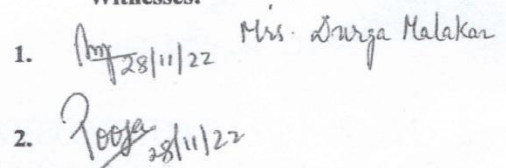 Witnesses:
1. 28/11/22 Mrs. Durga Malakar
2. Pooja 28/11/22